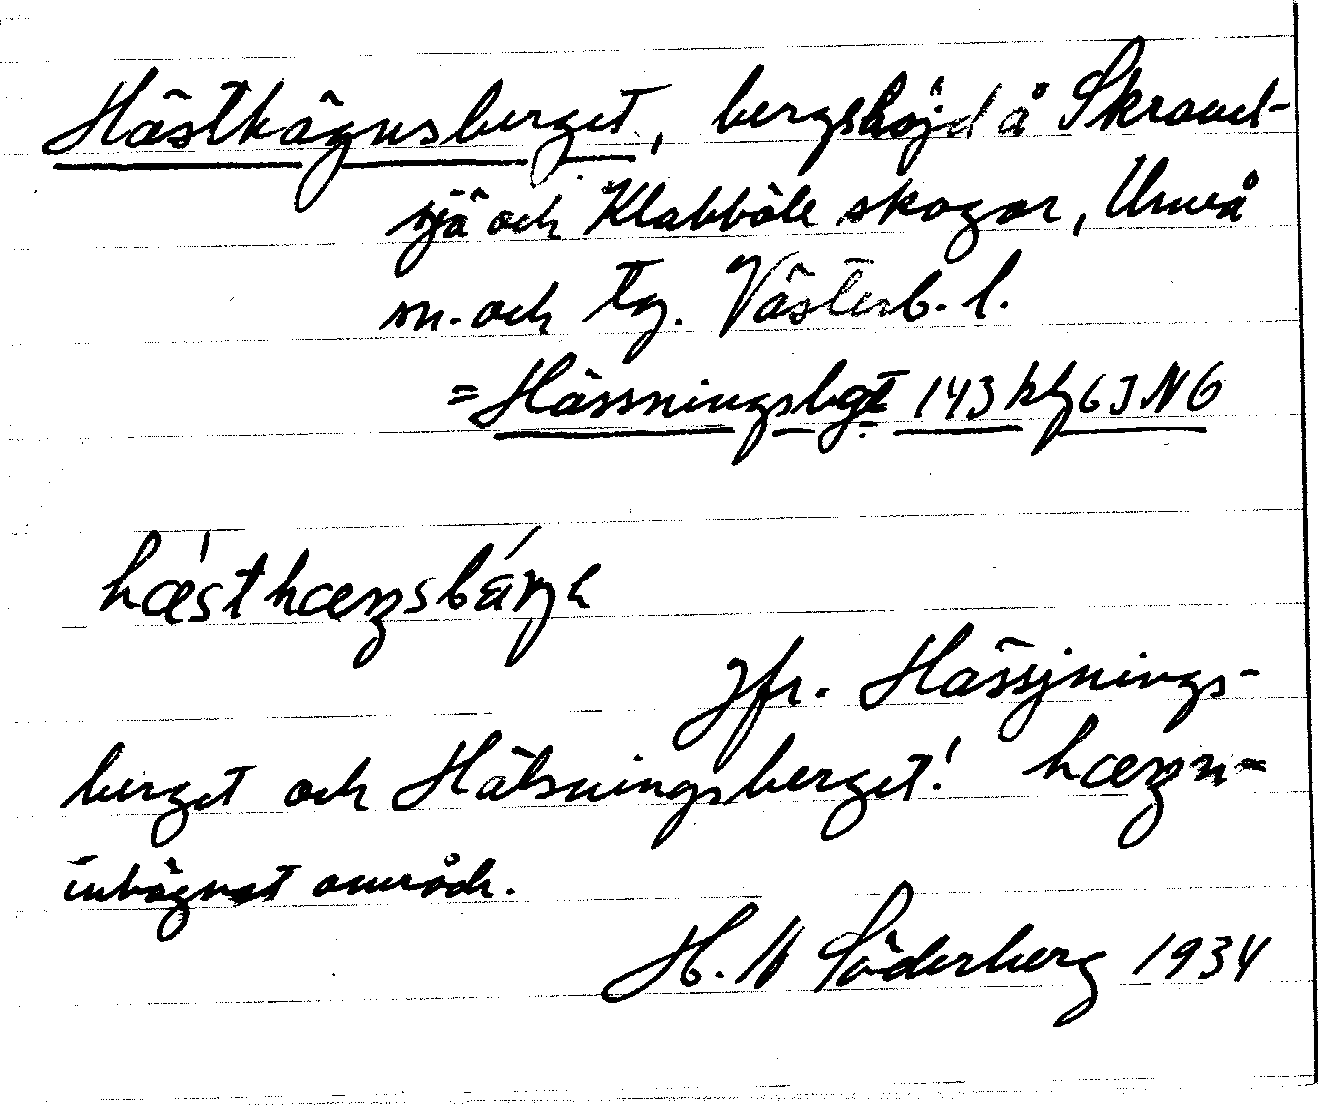 Hästhägnsberget, bergshöjd å Skravel-
sjä och Klabböle skogar, Umeå
sn. och tg. Västerb. l.
= Hässningsbgt 143 hfg 63 N6
hæsthæŋsbärje
Jfr. Hässjnings-
berget och Hälsningsberget! hæŋn=
inhägnat område.
H. N Söderberg 1934